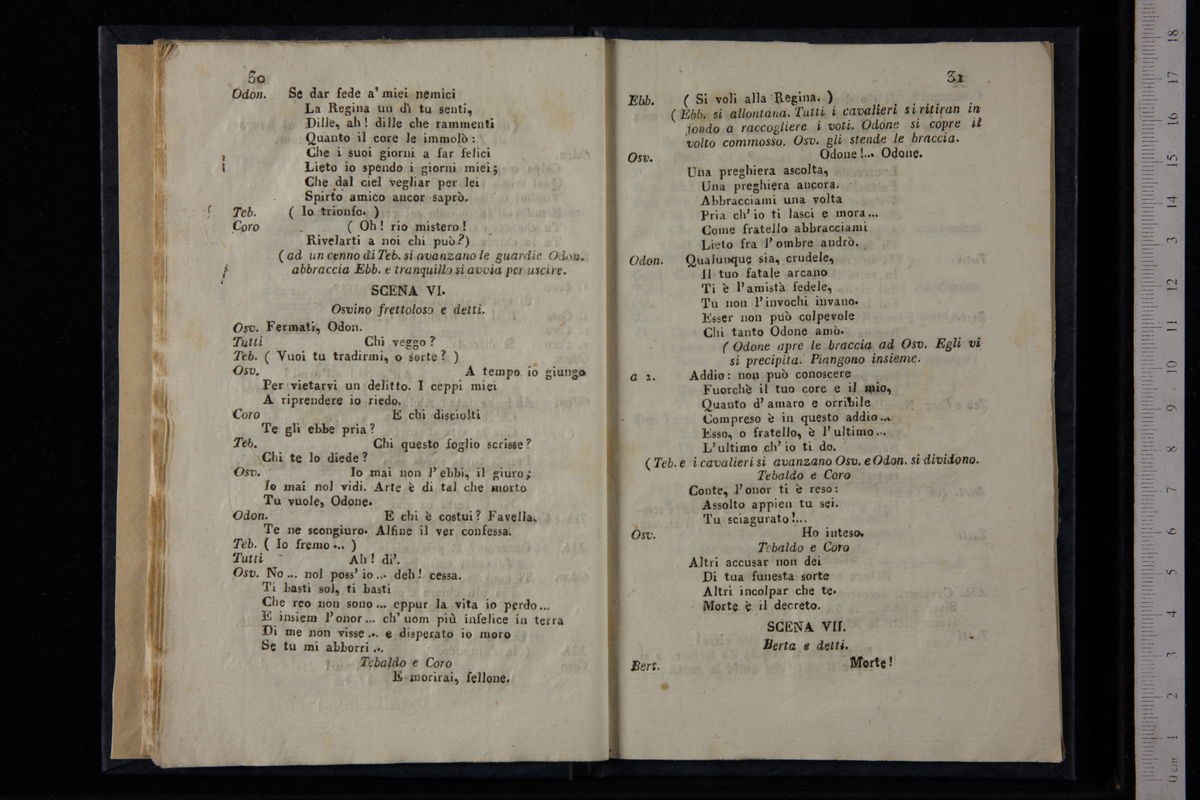 30
Odon. Se dar fede a' miei nemici
La Regina un dì tu senti,
Dille, ah! dille che rammenti
Quanto il core le immolò:
Che i suoi giorni a far felici
Lieto io spendo i giorni miei;
Che dal ciel vegliar per lei
Spirto amico ancor saprò.
Teb. ( Io trionfo. )
Coro ( Oh! rio mistero!
Rivelarti a noi chi può?)
( ad un cenno di Teb. si avanzano le guardie Odon.
abbraccia Ebb. e tranquillo si avvia per uscire.
SCENA VI.
Osvino frettoloso e detti.
Osv. Fermati, Odon.
Tutti Chi veggo?
Teb. ( Vuoi tu tradirmi, o sorte? )
Osv. A tempo io giungo
Per vietarvi un delitto. I ceppi miei
A riprendere io riedo.
Coro E chi disciolti
Te gli ebbe pria?
Teb. Chi questo foglio scrisse?
Chi te lo diede?
Osv. Io mai non l'ebbi, il giuro;
Io mai nol vidi. Arte è di tal che morto
Tu vuole, Odone.
Odon. E chi è costui? Favella.
Te ne scongiuro. Alfine il ver confessa.
Teb. ( Io fremo... )
Tutti Ah! di'.
Osv. No... nol poss' io... deh! cessa.
Ti basti sol, ti basti
Che reo non sono... eppur la vita io perdo...
E insiem l'onor... ch' uom più infelice in terra
Di me non visse... e disperato io moro
Se tu mi abborri...
Tebaldo e Coro
E morirai, fellone.
31
Ebb. ( Si voli alla Regina. )
( Ebb. si allontana. Tutti i cavalieri si ritiran in
fondo a raccogliere i voti. Odone si copre il
volto commosso. Osv. gli stende le braccia.
Osv. Odone!... Odone.
Una preghiera ascolta,
Una preghiera ancora.
Abbracciami una volta
Pria ch' io ti lasci e mora...
Come fratello abbracciami
Lieto fra l' ombre andrò.
Odon. Qualunque sia, crudele,
Il tuo fatale arcano
Ti è l'amistà fedele,
Tu non l'invochi invano.
Esser non può colpevole
Chi tanto Odone amò.
( Odone apre le braccia ad Osv. Egli vi
si precipita. Piangono insieme.
a 2. Addio: non può conoscere
Fuorchè il tuo core e il mio,
Quanto d' amaro e orribile
Compreso è in questo addio...
Esso, o fratello, è l'ultimo...
L'ultimo ch' io ti do.
( Teb. e i cavalieri si avanzano Osv. e Odon. si dividono.
Tebaldo e Coro
Conte, l'onor ti è reso:
Assolto appien tu sei.
Tu sciagurato!...
Osv. Ho inteso.
Tebaldo e Coro
Altri accusar non dei
Di tua funesta sorte
Altri incolpar che te.
Morte è il decreto.
SCENA VII.
Berta e detti.
Bert. Morte!
0 cm 1 2 3 4 5 6 7 8 9 10 11 12 13 14 15 16 17 18